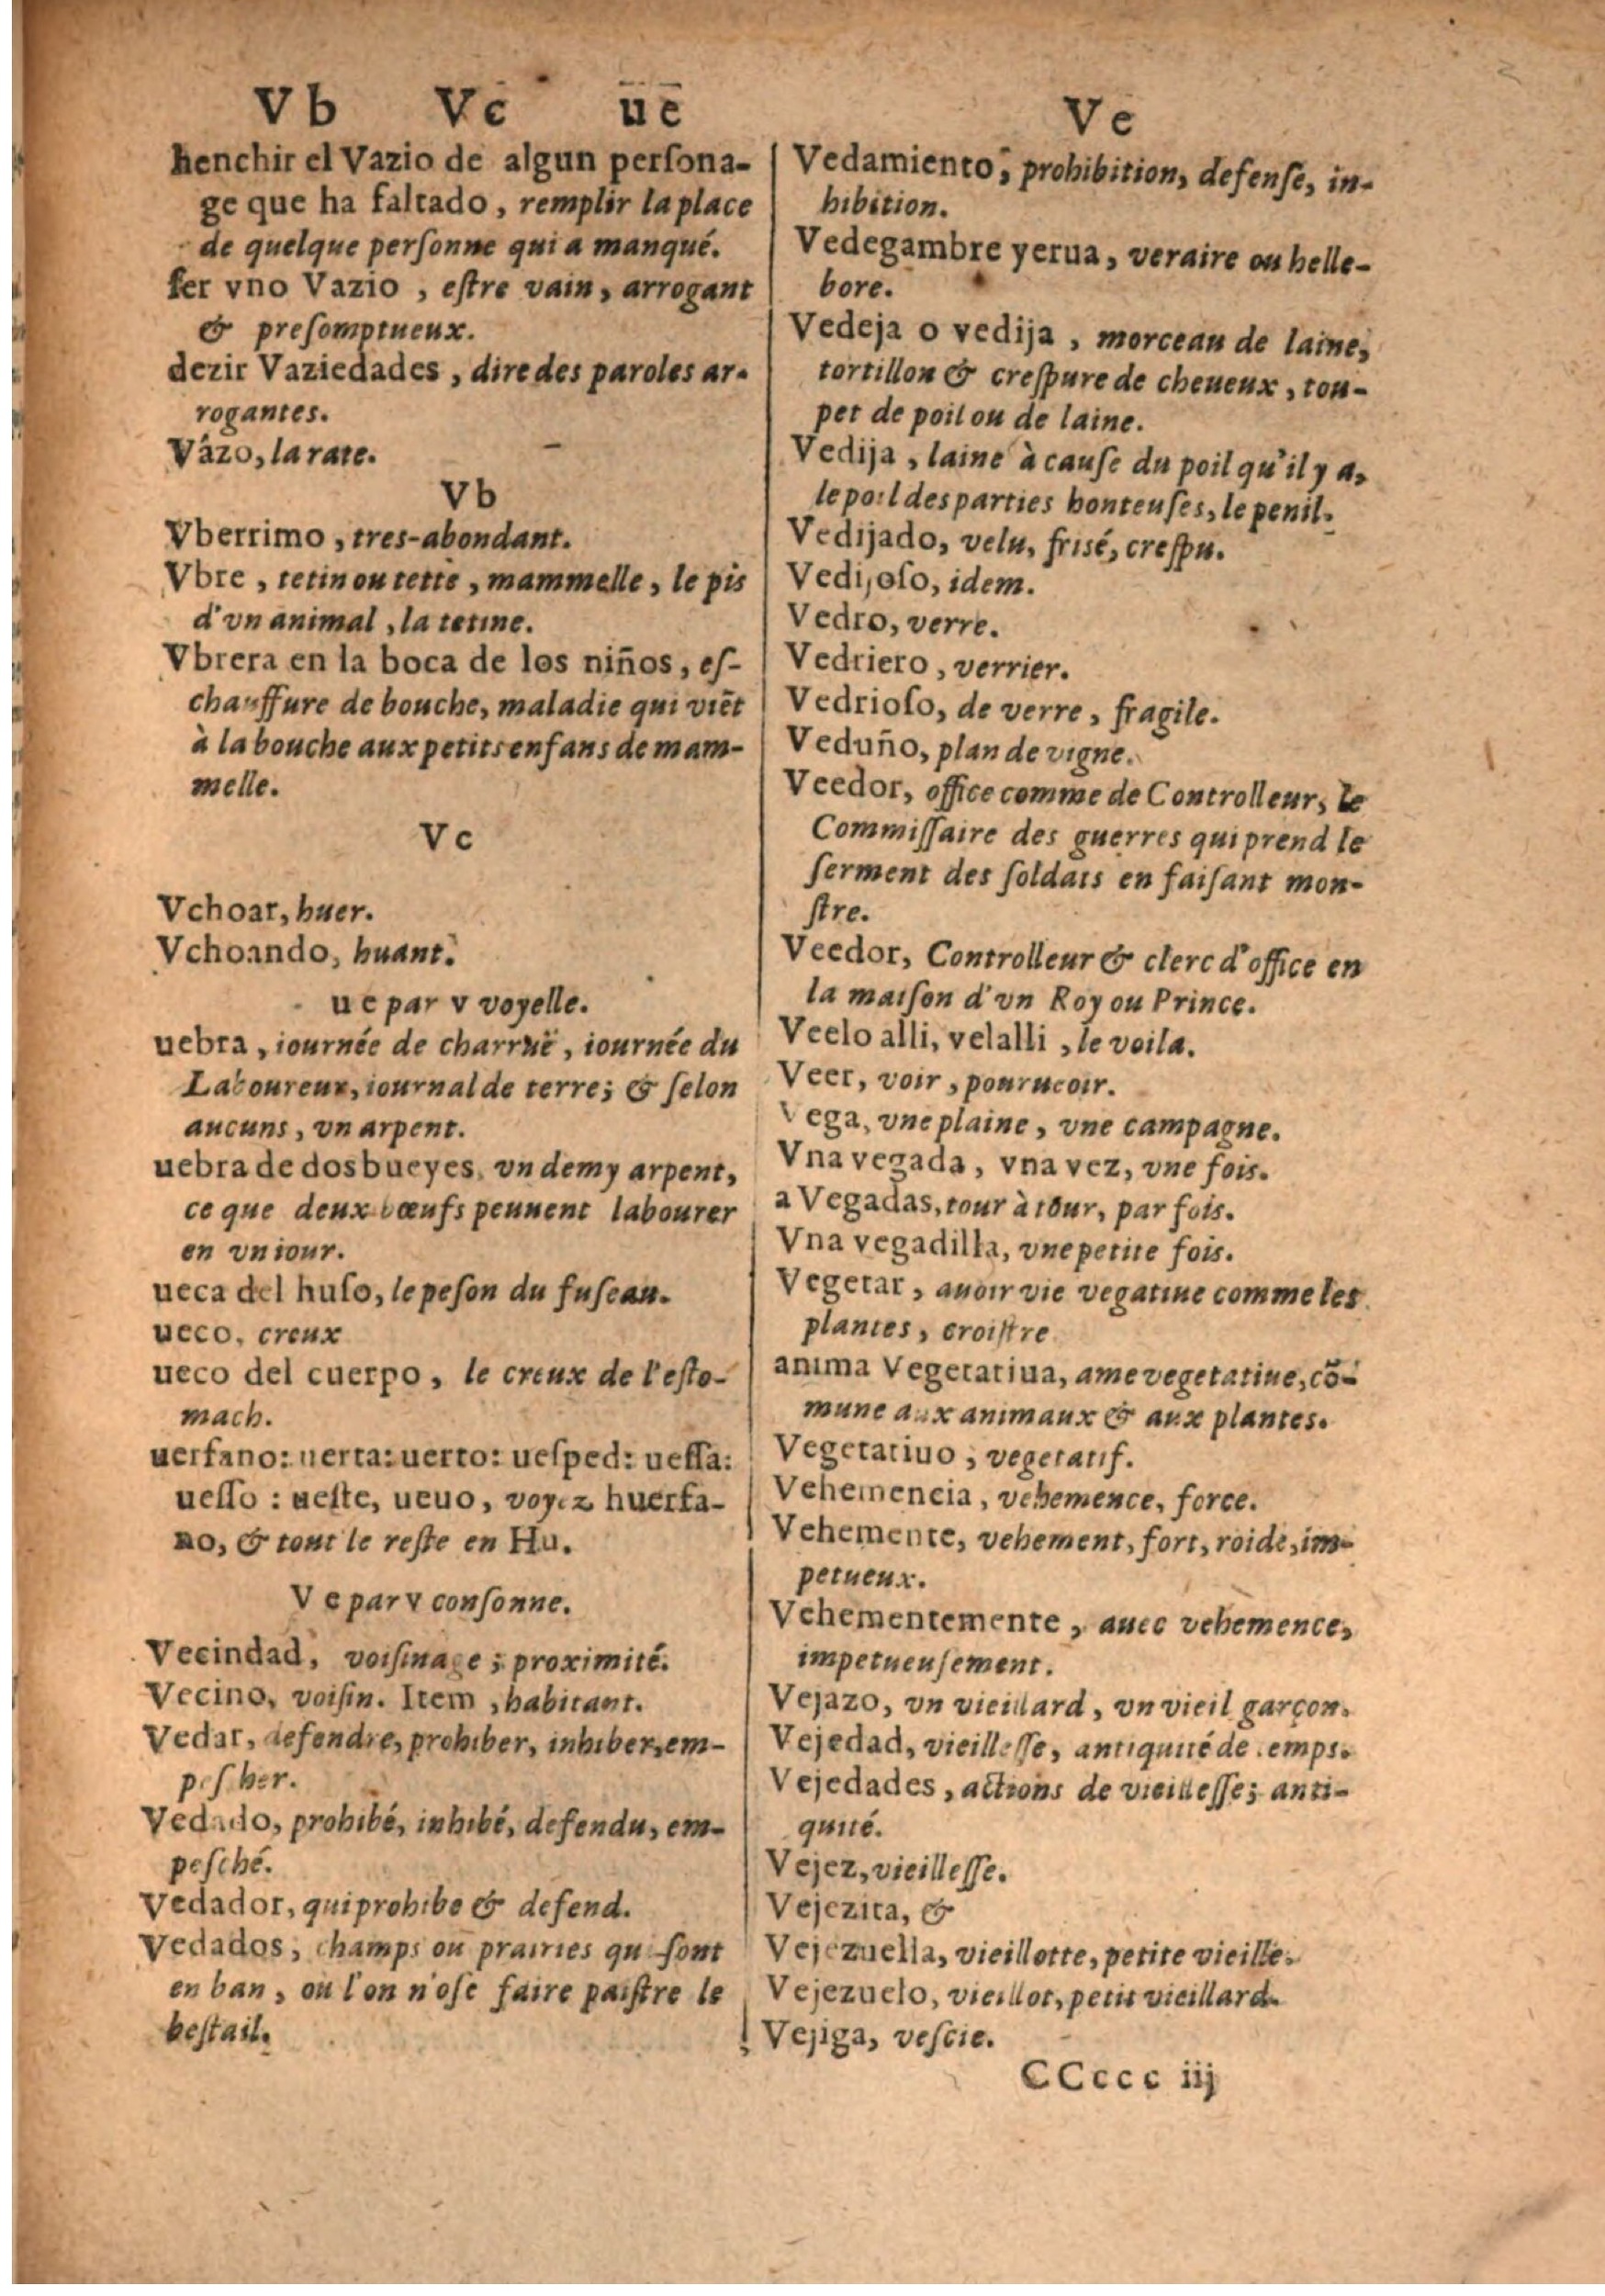 Vb Vc ue
henchir el Vazio de algun perſona-
ge que ha faltado, remplir la place
de quelque perſonne qui a manqué.
ſer vno Vazio, eſtre vain, arrogant
& preſomptueux.
dezir Vaziedades, dire des paroles ar-
rogantes.
Vâzo, la rate.
Vb
Vberrimo, tres-abondant.
Vbre, tetin ou tette, mammelle, le pis
d'vn animal, la tetine.
Vbrera en la boca de los niños, eſ-
chauffure de bouche, maladie qui viẽt
à la bouche aux petits enfans de mam-
melle.
Vc
Vchoar, huer.
Vchoando, huant.
ue par v voyelle.
uebra, iournée de charruë, iournée du
Laboureur, iournal de terre; & ſelon
aucuns, vn arpent.
uebra de dos bueyes, vn demy arpent,
ce que deux bœufs peuuent labourer
en vn iour.
ueca del huſo, le peſon du fuſeau.
ueco, creux
ueco del cuerpo, le creux de l'eſto-
mach.
uerfano: uerta: uerto: ueſped: ueſſa:
ueſſo: ueſte, ueuo, voyez huerfa-
no, & tout le reſte en Hu.
Ve par v conſonne.
Vecindad, voiſinage; proximité.
Vecino, voiſin. Item, habitant.
Vedar, defendre, prohiber, inhiber, em-
peſcher.
Vedado, prohibé, inhibé, defendu, em-
peſché.
Vedador, qui prohibe & defend.
Vedados, champs ou prairies qui ſont
en ban, ou l'on n'oſe faire paiſtre le
beſtail.
Ve
Vedamiento, prohibition, defenſe, in-
hibition.
Vedegambre yerua, veraire ou helle-
bore.
Vedeja o vedija, morceau de laine,
tortillon & creſpure de cheueux, tou-
pet de poil ou de laine.
Vedija, laine à cauſe du poil qu'il y a,
le poil des parties honteuſes, le penil.
Vedijado, velu, friſé, creſpu.
Vedijoſo, idem.
Vedro, verre.
Vedriero, verrier.
Vedrioſo, de verre, fragile.
Veduño, plan de vigne.
Veedor, office comme de Controlleur, le
Commiſſaire des guerres qui prend le
ſerment des ſoldats en faiſant mon-
ſtre.
Veedor, Controlleur & clerc d'office en
la maiſon d'vn Roy ou Prince.
Veelo alli, velalli, le voila.
Veer, voir, pouruoir.
Vega, vne plaine, vne campagne.
Vna vegada, vna vez, vne fois.
a Vegadas, tour à tour, par fois.
Vna vegadilla, vne petite fois.
Vegetar, auoir vie vegatiue comme les
plantes, croiſtre
anima Vegetatiua, ame vegetatiue, cõ-
mune aux animaux & aux plantes.
Vegetatiuo, vegetatif.
Vehemencia, vehemence, force.
Vehemente, vehement, fort, roide, im-
petueux.
Vehementemente, auec vehemence,
impetueuſement.
Vejazo, vn vieillard, vn vieil garçon.
Vejedad, vieilleſſe, antiquité de temps.
Vejedades, actions de vieilleſſe; anti-
quité.
Vejez, vieilleſſe.
Vejezita, &
Vejezuella, vieillotte, petite vieille.
Vejezuelo, vieillot, petit vieillard.
Vejiga, veſcie.
CCccc iij